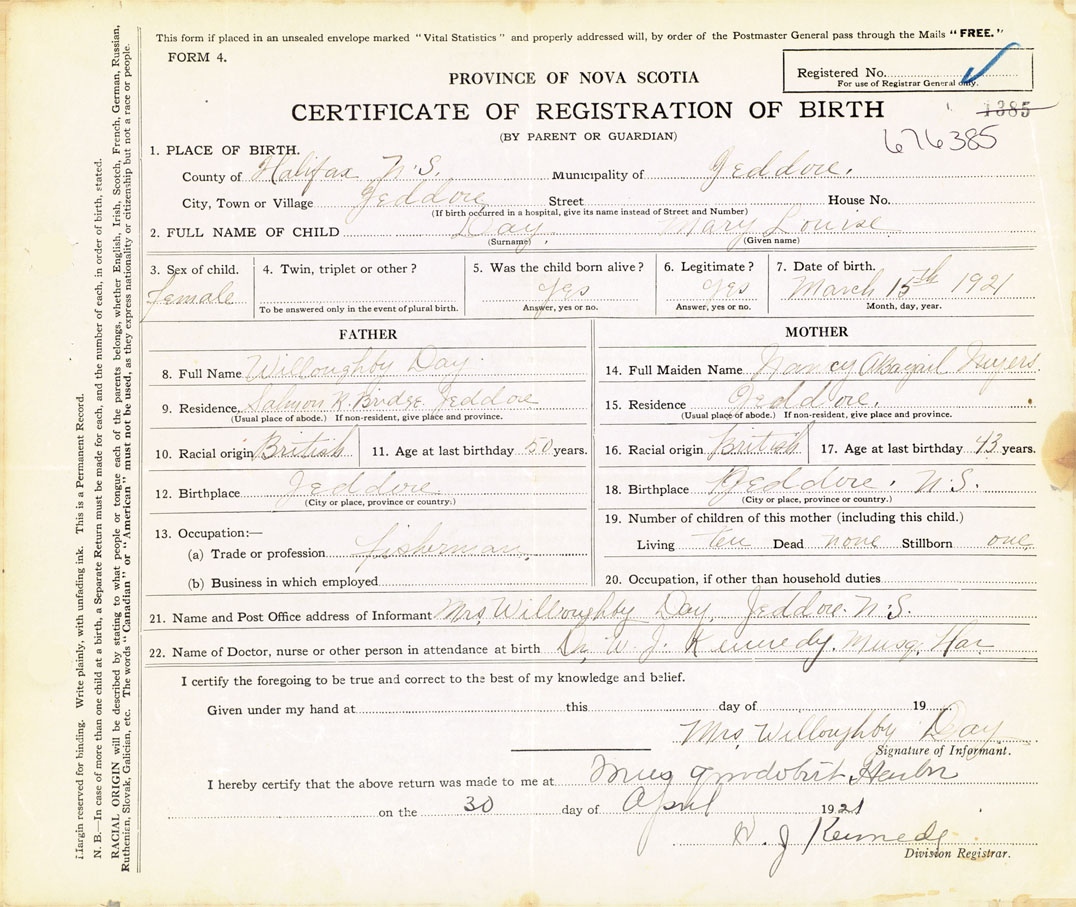 This form if placed in an unsealed envelope marked "Vital Statistics" and properly addressed will, by order of the Postmaster General pass through the Mails "FREE."
FORM 4.
Registered No.
For use of Registrar General only.
PROVINCE OF NOVA SCOTIA
CERTIFICATE OF REGISTRATION OF BIRTH
1385
(BY PARENT OR GUARDIAN)
676385
1. PLACE OF BIRTH.
County of Halifax N.S. Municipality of Jeddore.
City, Town or Village Jeddore Street House No.
(If birth occurred in a hospital, give its name instead of Street and Number)
2. FULL NAME OF CHILD Day Mary Louise
(Surname) (Given name)
3. Sex of child. 4. Twin, triplet or other? 5. Was the child born alive? 6. Legitimate? 7. Date of birth.
female yes yes March 15th 1921
To be answered only in the event of plural birth. Answer, yes or no. Answer, yes or no. Month, day, year.
FATHER MOTHER
8. Full Name Willoughby Day 14. Full Maiden Name Nancy Abagail
9. Residence Salmon R. Bridge Jeddore 15. Residence Jeddore.
(Usual place of abode.) If non-resident, give place and province. (Usual place of abode.) If non-resident, give place and province.
10. Racial origin British 11. Age at last birthday 50 years. 16. Racial origin British 17. Age at last birthday 43 years.
12. Birthplace Jeddore 18. Birthplace Jeddore. N.S.
(City or place, province or country.) (City or place, province or country.)
13. Occupation:— 19. Number of children of this mother (including this child.)
(a) Trade or profession fisherman Living ten Dead none Stillborn one
(b) Business in which employed 20. Occupation, if other than household duties
21. Name and Post Office address of Informant Mrs Willoughby Day, Jeddore. N.S.
22. Name of Doctor, nurse or other person in attendance at birth Dr. W. J. Kennedy. Musq. Har
I certify the foregoing to be true and correct to the best of my knowledge and belief.
Given under my hand at this day of 19
Mrs, Willoughby Day
Signature of Informant.
I hereby certify that the above return was made to me at Musquodoboit Harbor
on the 30 day of April 1921
W. J Kennedy
Division Registrar.
Margin reserved for binding. Write plainly, with unfading ink. This is a Permanent Record.
N. B.—In case of more than one child at a birth, a Separate Return must be made for each, and the number of each, in order of birth, stated.
RACIAL ORIGIN will be described by stating to what people or tongue each of the parents belongs, whether English, Irish, Scotch, French, German, Russian,
Ruthenian, Slovak, Galician, etc. The words "Canadian" or "American" must not be used, as they express nationality or citizenship but not a race or people.